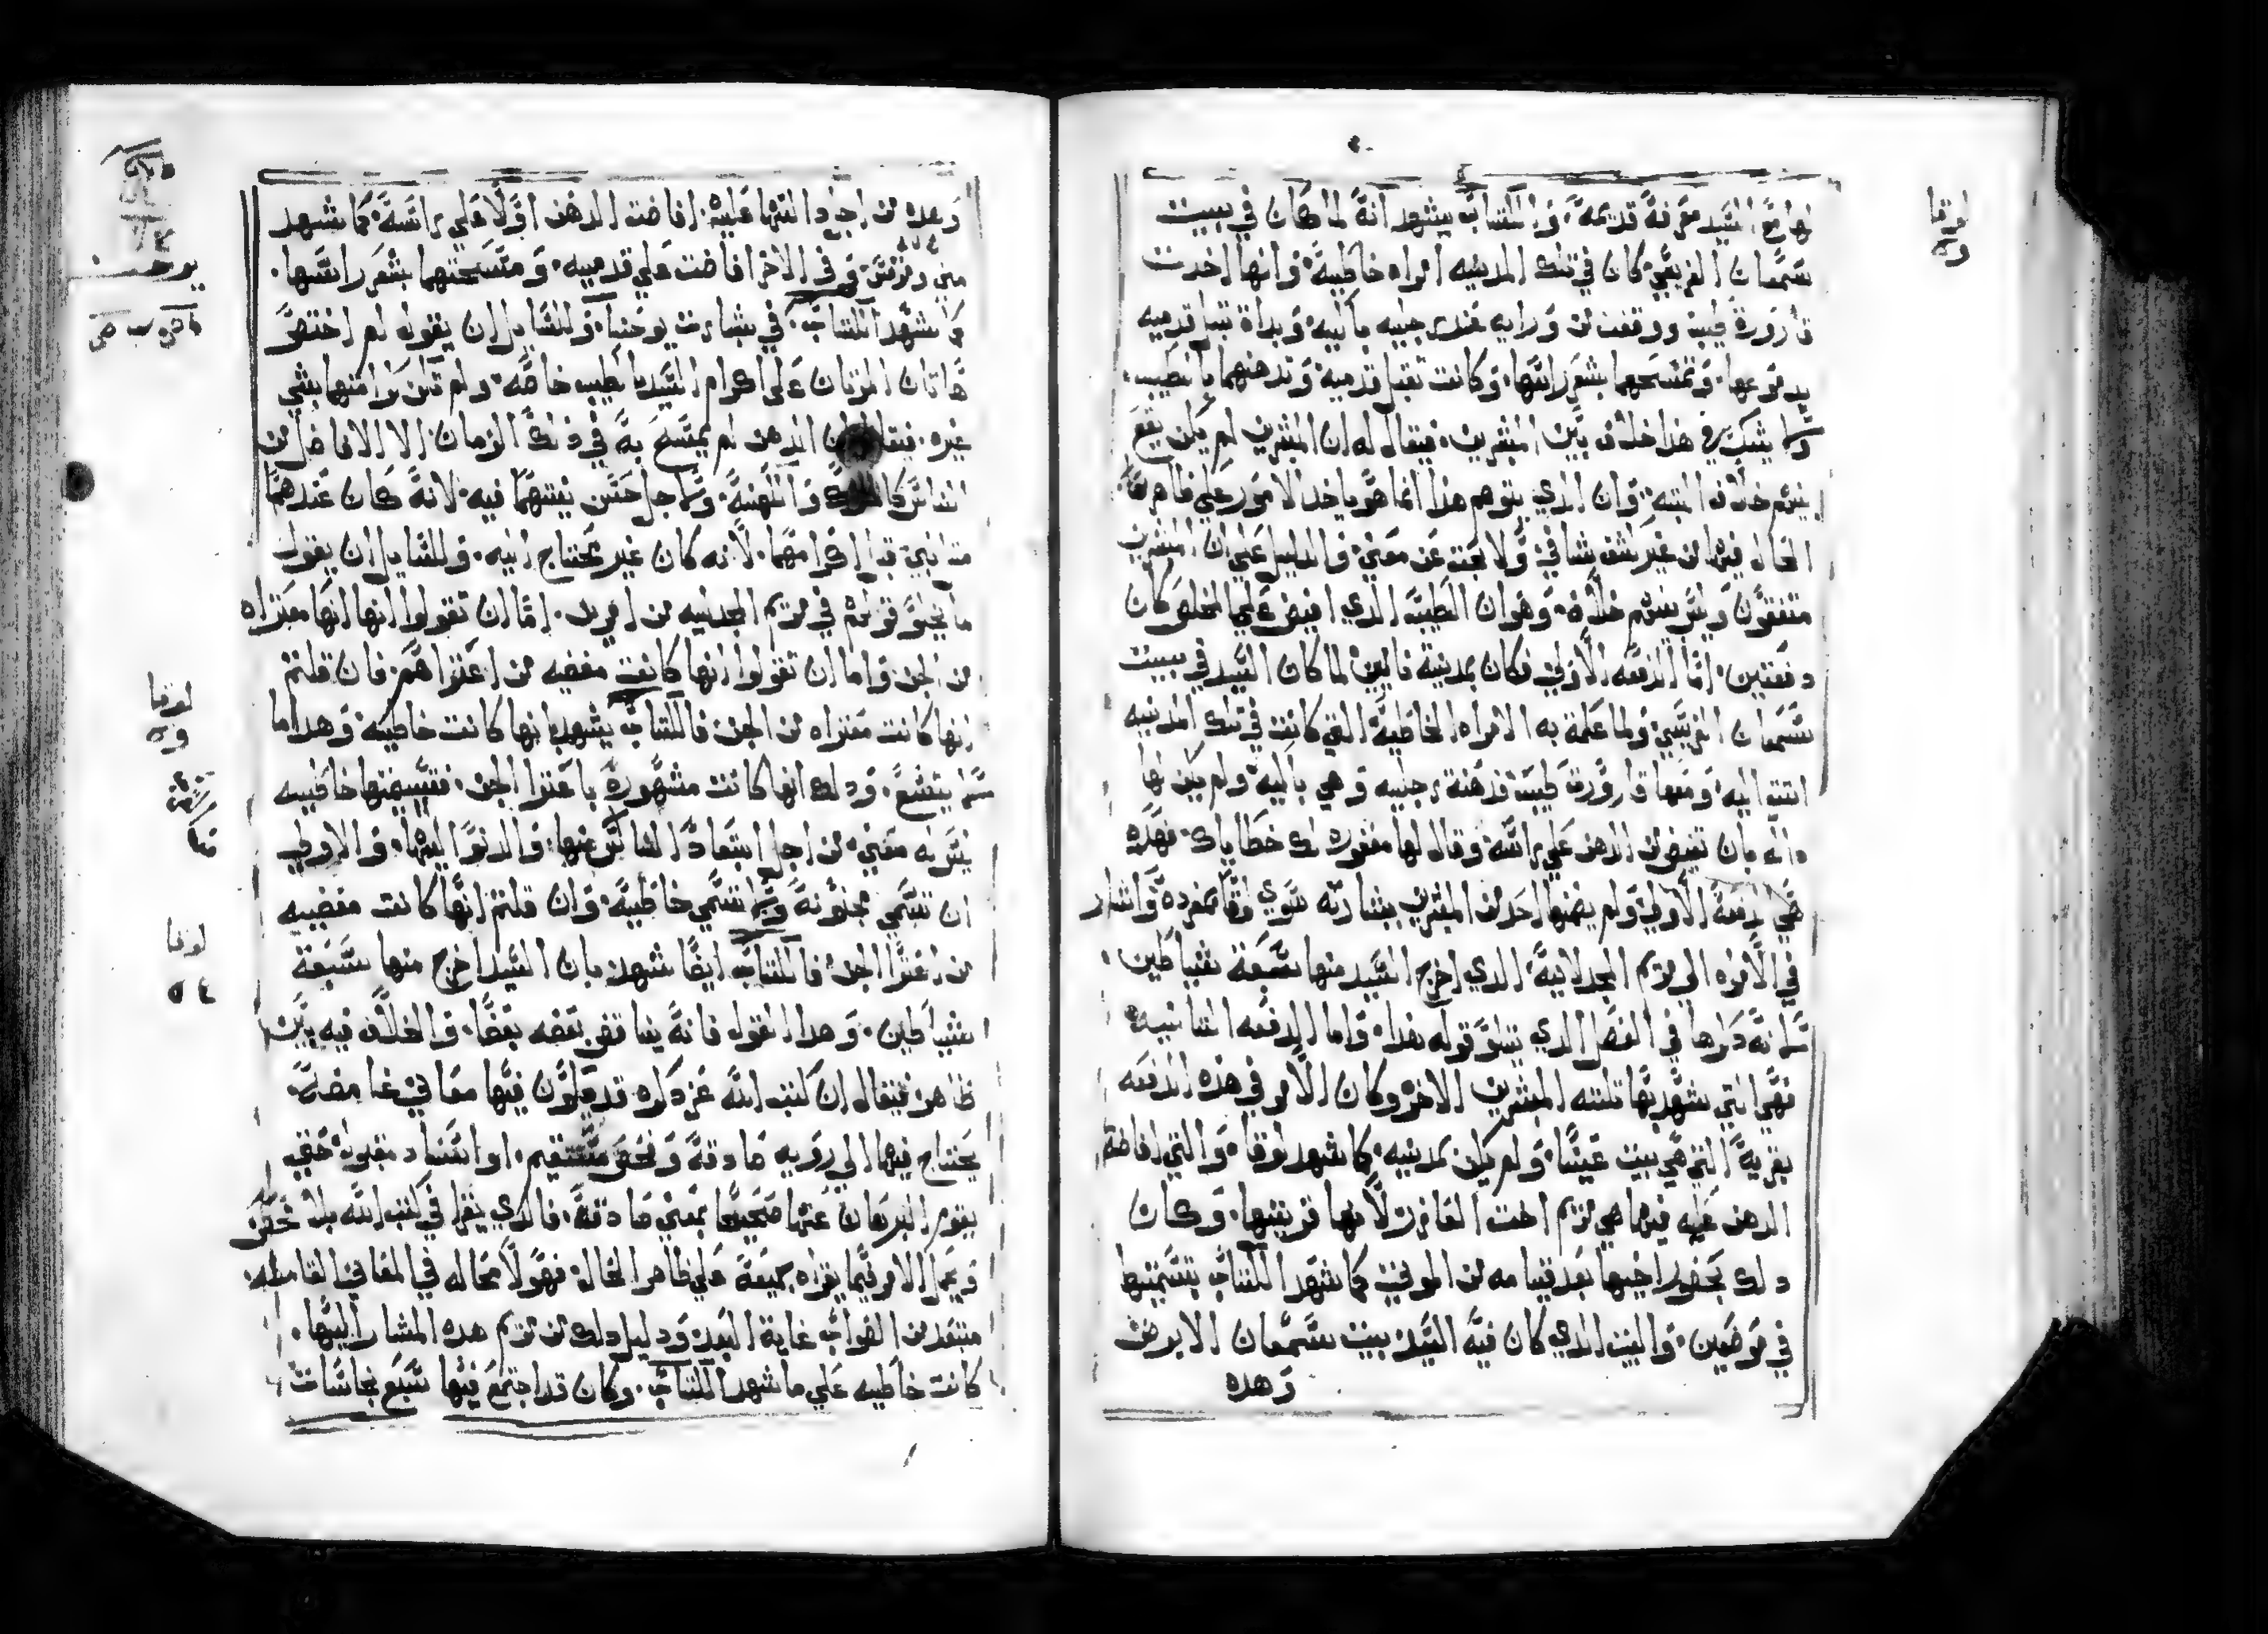 لها مع السيد معرفة قديمة. والكتاب يشهد انه لما كان في بييت
سمعان الفريسي كان في تلك المدينه امراه خاطية. وانها اخدت
قارورة طيب ووقفت من ورايه عند رجليه باكيه. وبداة تبل قدميه
بدموعها. وتمسحهما بشعر راسها. وكانت تقبل قدميه وتدهنهما بالطيب.
في هذا خلاف بين المبشرين. فيقال له ان المبشرين لم يكن يقع
بينهم خلاف البته. وان الدي يتوهم هذا انما هو ياخد الامور علي ظاهر
الحال فيها من غير كشف شافي ولا بحت عن معني. والدليل علي ان المبشرين
متفقون وليس بينهم خلاف. وهو ان الطيب الدي افيض علي المخلص كان
دفعتين. امّا الدفعه الاولي فكان بمدينة نايين لما كان السيد في بييت
سمعان الفريسي ولما علمة به الامراه الخاطية التي كانت في تلك المدينه
اتت اليه ومعها قارورة طيب فدهنة رجليه وهي باكيه. ولم يكن لها
داله بان تفيض من الدهن علي راسه وقال لها مغفوره لك خطاياك. فهده
هي الدفعة الاولي ولم يضمنها احد من المبشرين بشارته سوي لوقا بمفرده واشار
في الامراه الي مريم المجدلانية. الدي اخرج السيد منها سبعة شياطين.
لانه دكرها في الفصل الدي يتلو قوله هدا. واما الدفعه التانيه
فهي التي شهد بها تلتة المبشرين الاخر. وكان الامر في هذه الدفعه
بقرية التي هي بيت عنيا. ولم يكن بمدينه. كما شهد لوقا. والتي افاضة
الدهن عليه فيها هي مريم اخت العازر لانها قريتها. وكان
دلك بحضور اخيها بعد قيامه من الموت كما شهد الكتاب بتسميتها
في موضعين. والبيت الدي كان فيه السيد بيت سمعان الابرص
وهده
لوقا
وه
وهده من اجل دالتها عليه. افاضت الدهن اولا علي راسه. كما شهد
متي ومرقس وفي الاخر افاضت علي قدميه. ومسحتهما بشعر راسها.
كما شهد الكتاب. في بشارت يوحنا. وللسايل ان يقول لم اختصو
هاتان المرتان علي اكرام السيد بالطيب خاصّه. ولم تكن كرامتهما بشي
غيره. فيقال ان الدهن لم يمسح به في دلك الزمان الا الافاضل من
الناس كالملوك والكهنة. ولاجل حسن نيتهما فيه. لانه كان عندهما
قبل اكرامهما. لانه كان غير محتاج اليه. وللسايل ان يقول
ما يخلو قولكم في مريم المجدليه من امرين. امّا ان تقولوا انها معتراه
من الجن واما ان تقولوا انها كانت مفضيه من اعتراهم. فان قلتم
انها كانت معتراه من الجن فالكتاب يشهد انها كانت خاطيه. وهدا ما
لا يتسع. ودلك انها كانت مشهورة باعترا الجن. فتسميتها خاطيه
ليس له معني. من اجل ابتعاد الناس عنها. والدنو اليها. والاولي
ان تسمي مجنونة ولا تسمي خاطية. وان قلتم انها كانت مفضيه
من اعترا الجن. فالكتاب ايضًا شهد بان السيد اخرج منها سبعة
شياطين. وهدا القول فانه يناقض بعضه بعضًا. والخلاف فيه بين
ظاهر فيقال ان كتب الله عز دكره قد يكون فيها معاني غامضة.
يحتاج فيها الي رويه صادقة وفحص مستقيم. او اسناد مقبول حتي
يقوم البرهان عنها صحيحًا بمعني صادقة. فالدي يقرا في كتب الله بلا فحص
ويحمل الامر فيما يقراه جميعة علي ظاهر الحال. فهو لا محاله في المعاني الغامظه
مبتعد من الصواب غاية البعد. ودليل دلك من مريم هده المشار اليها.
كانت خاطيه علي ما شهد الكتاب. وكان قد اجتمع فيها سبع نجاسات
يوحنا
لوقا
وه
لوقا
٥٤